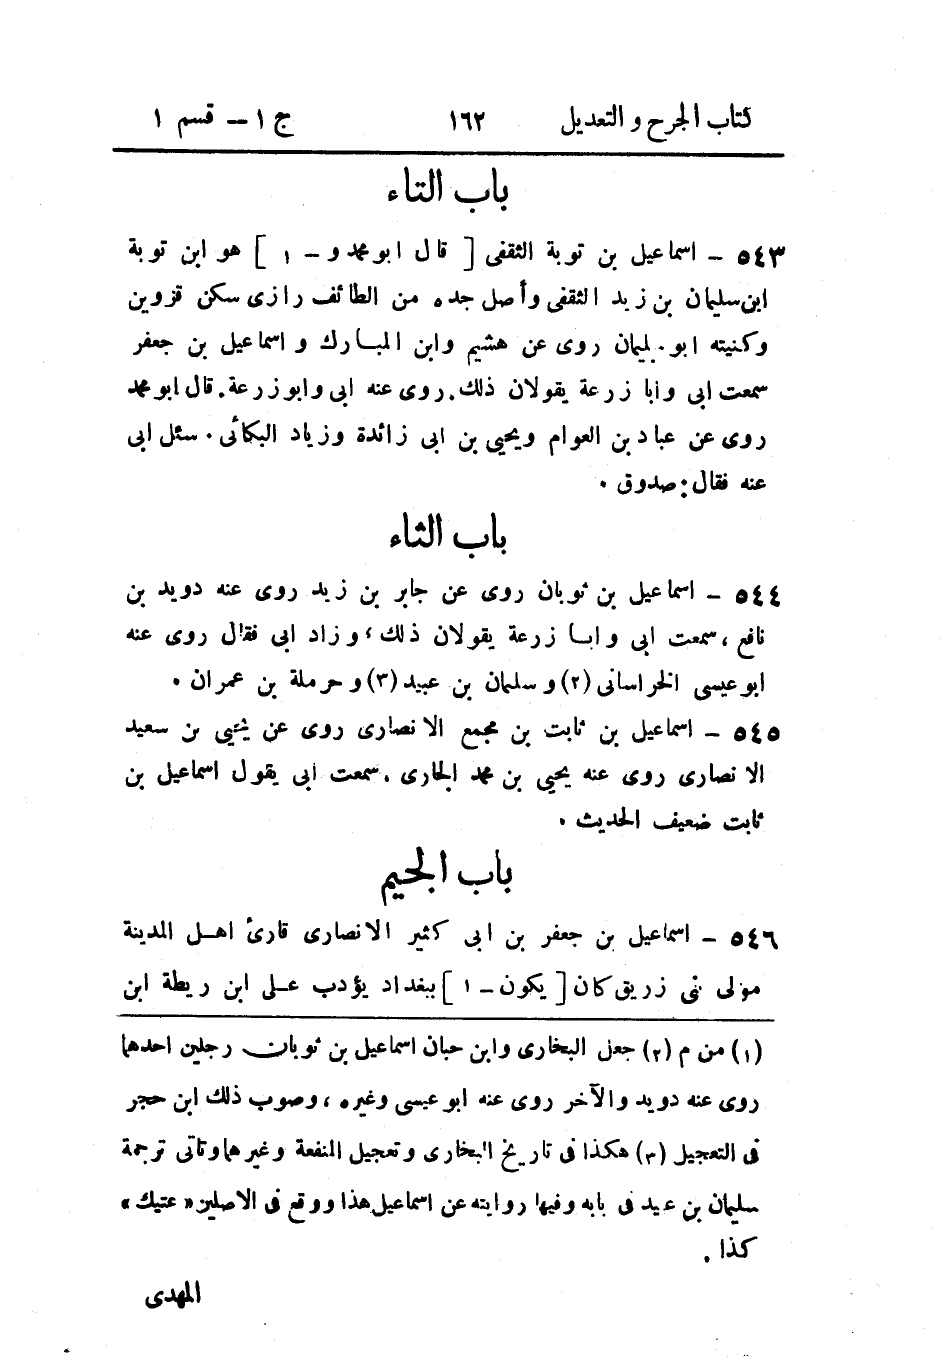 كتاب الجرح والتعديل ١٦٢ ج ١ – قسم ١
باب التاء
٥٤٣ – اسماعيل بن توبة الثقفى [ قال ابو محمد و – ١ ] هو ابن توبة
ابن سليمان بن زيد الثقفى وأصل جده من الطائف رازى سكن قزوين
وكنيته ابو ليمان روى عن هشيم وابن المبارك و اسماعيل بن جعفر
سمعت ابى وابا زرعة يقولان ذلك. روى عنه ابى وابو زرعة. قال ابو محمد
روى عن عباد بن العوام ويحيى بن ابى زائدة وزياد البكائى . سئل ابى
عنه فقال: صدوق .
باب الثاء
٥٤٤ – اسماعيل بن ثوبان روى عن جابر بن زيد روى عنه دويد بن
نافع ، سمعت ابى وابا زرعة يقولان ذلك ، وزاد ابى فقال روى عنه
ابو عيسى الخراسانى (٢) و سلمان بن عبيد (٣) و حرملة بن عمران .
٥٤٥ – اسماعيل بن ثابت بن مجمع الانصارى روى عن يحيى بن سعيد
الانصارى روى عنه يحيى بن محمد الجارى . سمعت ابى يقول اسماعيل بن
ثابت ضعيف الحديث .
باب الجيم
٥٤٦ – اسماعيل بن جعفر بن ابى كثير الانصارى قارئ اهل المدينة
مولى بنى زريق كان [ يكون – ١ ] ببغداد يؤدب على ابن ريطة ابن
(١) من م (٢) جعل البخارى وابن حبان اسماعيل بن ثوبان رجلين احدهما
روى عنه دويد والآخر روى عنه ابو عيسى وغيره ، وصوب ذلك ابن حجر
فى التعجيل (٣) هكذا فى تاريخ البخارى وتعجيل المنفعة وغيرهما وتاتى ترجمة
سليمان بن عبيد فى بابه وفيها روايته عن اسماعيل هذا ووقع فى الاصلين « عتيك »
كذا .
المهدى